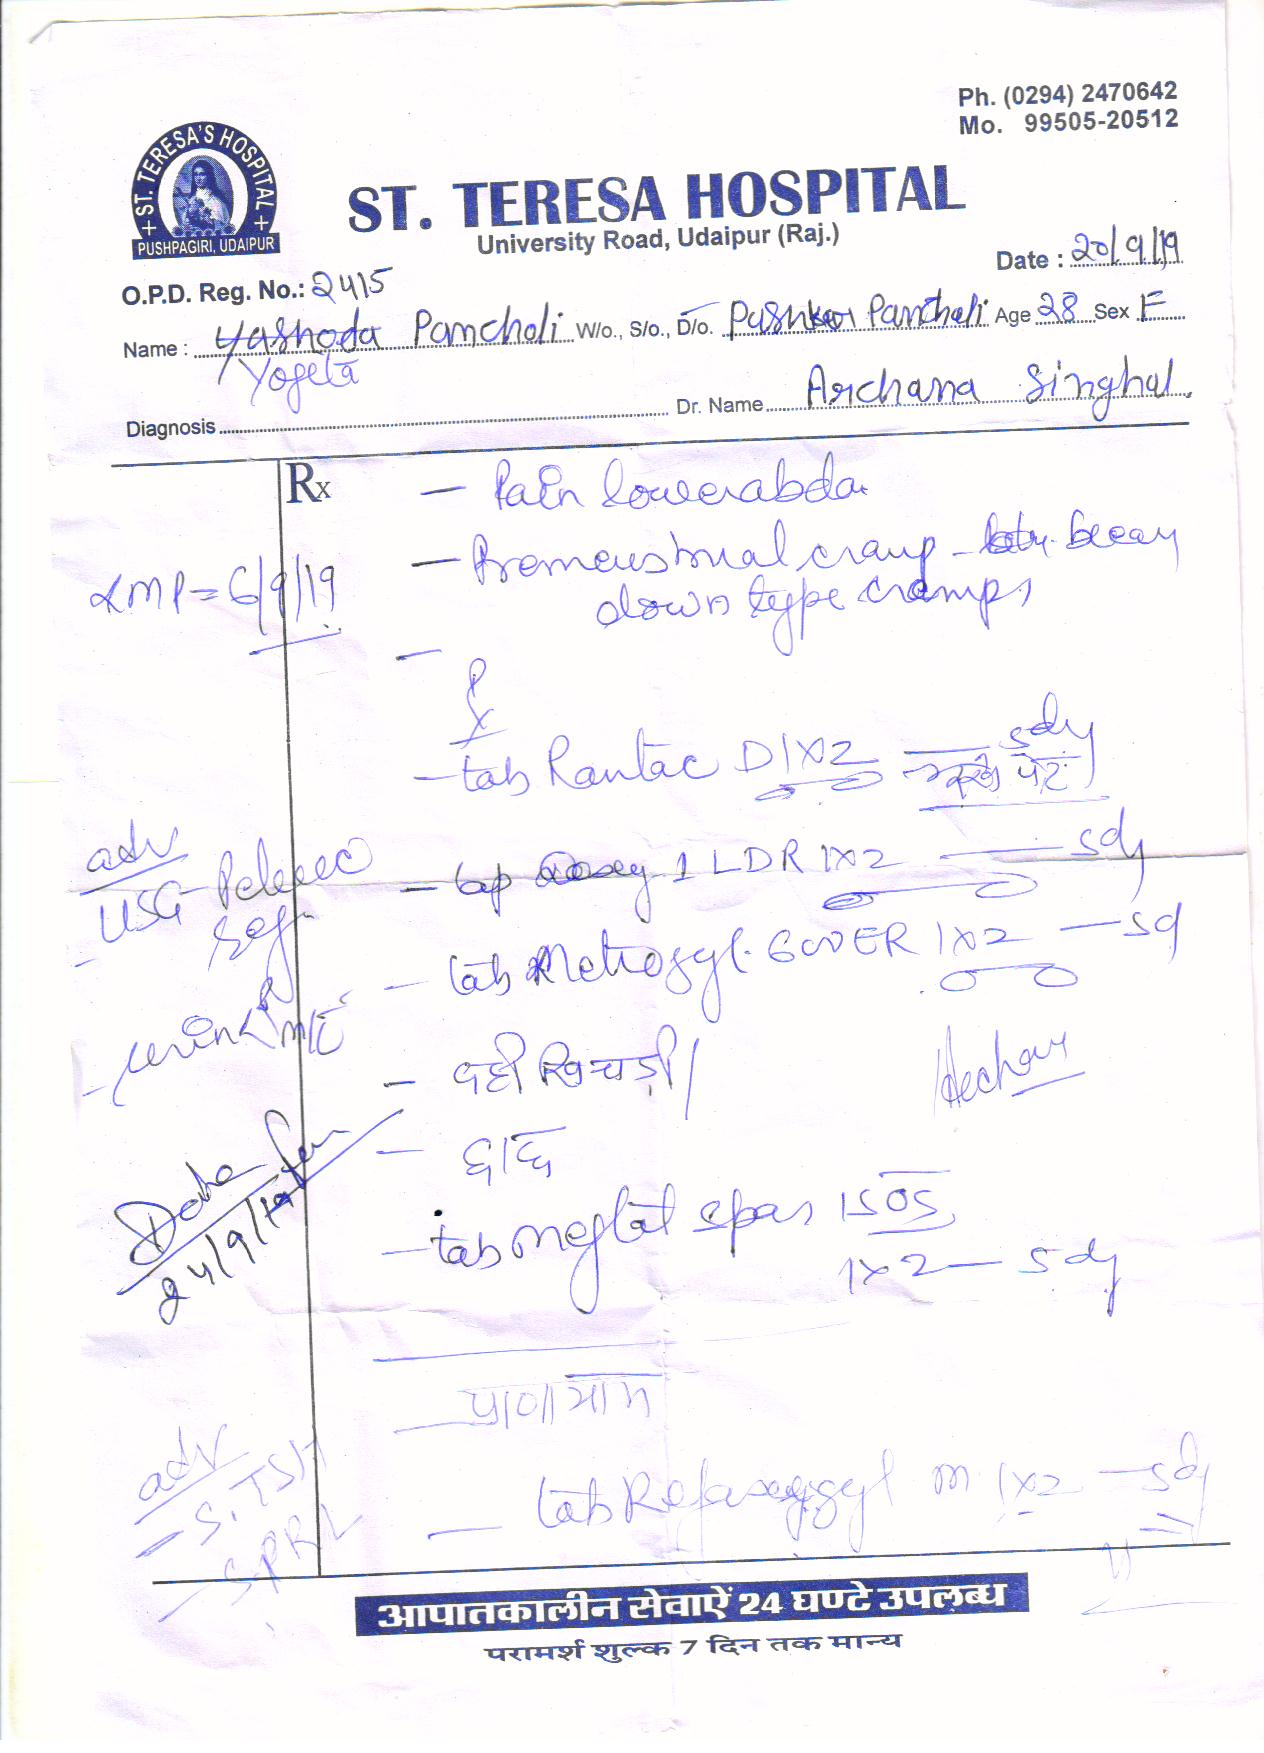 Ph. (0294) 2470642
Mo. 99505-20512
ST. TERESA'S HOSPITAL
PUSHPAGIRI, UDAIPUR
ST. TERESA HOSPITAL
University Road, Udaipur (Raj.)
Date : 20/9/19
O.P.D. Reg. No.: 2415
Name : Yashoda Pamcholi W/o., S/o., D/o. Pushkar Pancholi Age 28 Sex F
/Yogeta
Diagnosis Dr. Name Archana Singhal
Rx
- Pain lower abdo.
LMP = 6/9/19
- Premenstrual cramp
down type cramps
Rx
- tab Rantac D 1x2 — 5dy
भूखे पेट
adv
USG Pelvic
- cap 1 LDR 1x2 — 5dy
- tab Metrogyl 600 ER 1x2 — 5d
- urine R M/E
- दही खिचड़ी /
- छाछ
24/9/19
- tab Meftal spas 1 SOS
1x2 — 5dy
- प्राणायाम
adv
- S. TSH
- S PRL
- tab m 1x2 — 5dy
आपातकालीन सेवाऐं 24 घण्टे उपलब्ध
परामर्श शुल्क 7 दिन तक मान्य